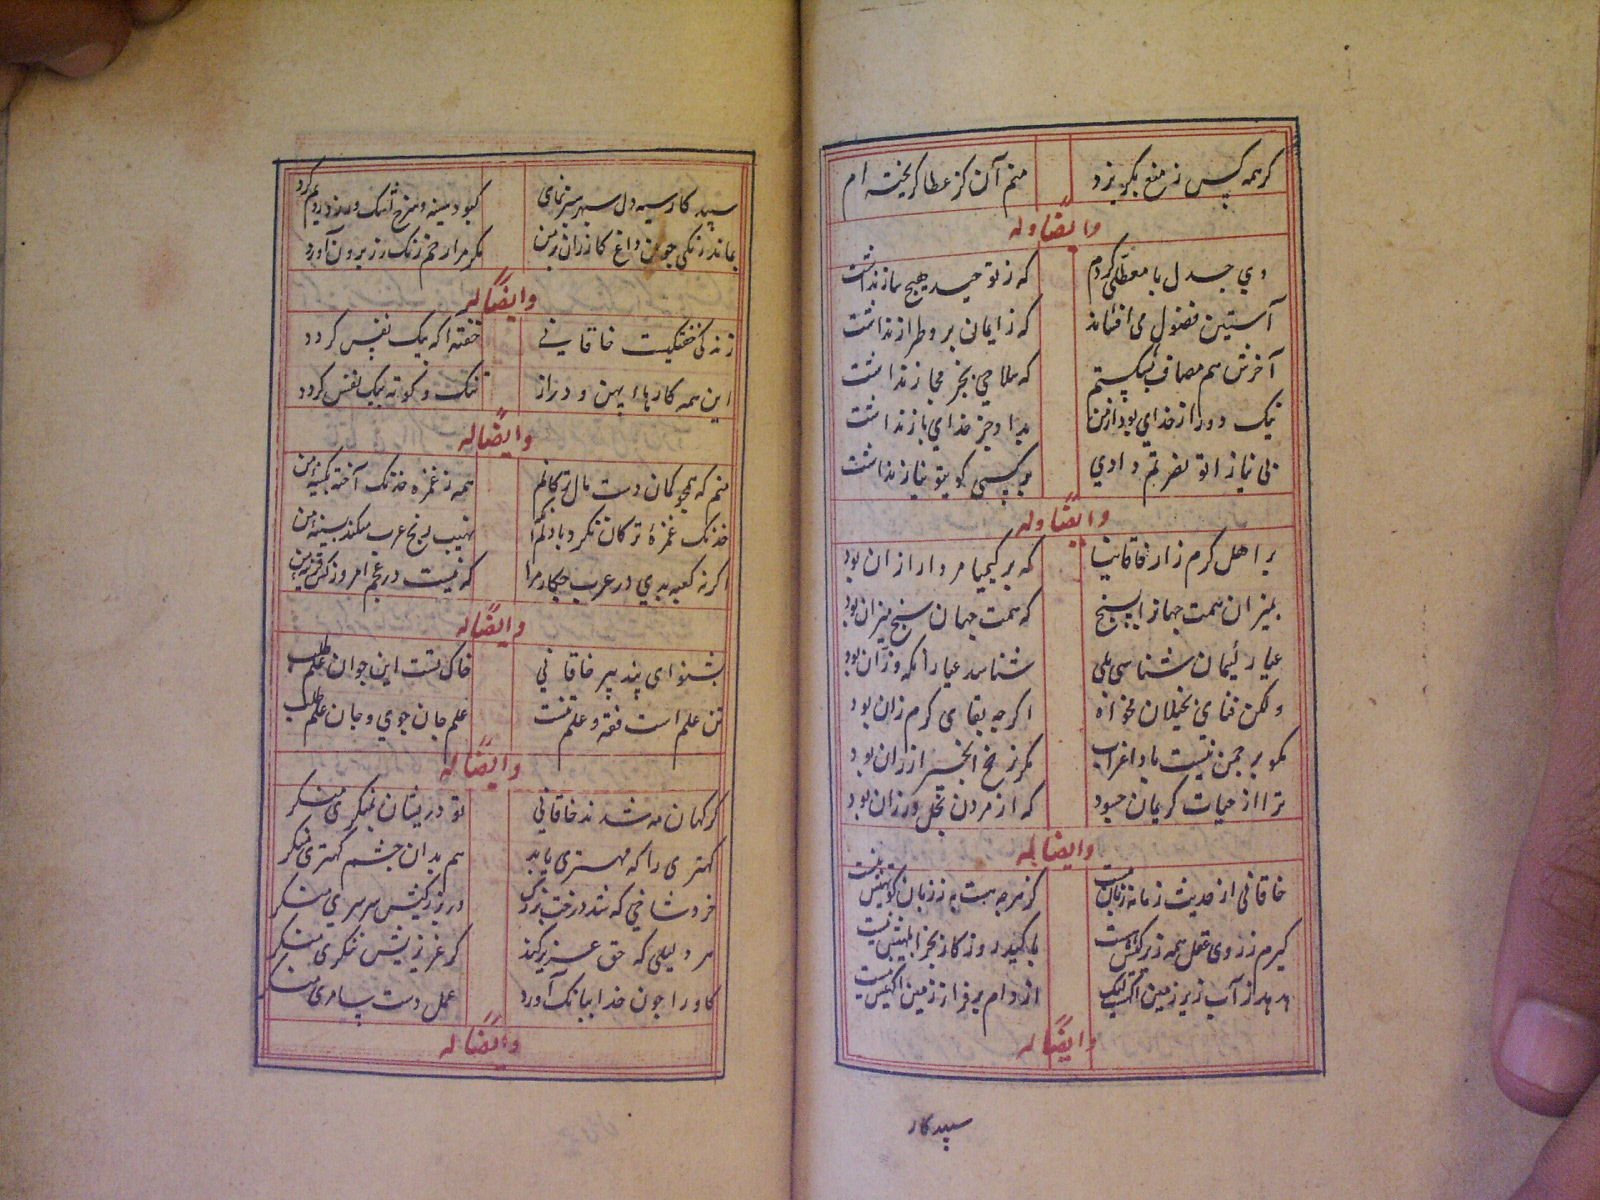 کر همه کس ز منع بگریزد منم آن کز عطا گریخته ام
وایضا وله
دی جدل با معطلی کردم که ز توحید هیچ ساز نداشت
آستین فضول می افشاند که ز ایمان برو طراز نداشت
آخرش هم مصاف بشکستم که سلاحی بجز مجاز نداشت
نیک دور از خدای بود از من بد او جز خدای باز نداشت
بی نیازا تو نصرتم دادی بر کسی کو بتو نیاز نداشت
وایضا وله
بر اهل کرم زار خاقانیا که بر کیمیا مردار ازان بود
بمیزان همت جهانرا بسنج که همت جهان سنج میزان بود
عیار لئیمان شناسی بلی شناسد عیار آنکه وزان بود
ولکن فنای بخیلان مخواه اکرچه بقای کرم زان بود
کمو بر چمن نیست باد اغراب مکر نرخ انجیر ارزان بود
ترا از حیات کریمان چه سود که از مردن بخل ورزان بود
وایضا له
خاقانی از حدیث زمانه زبان ببست کز هرچه هست به ز زبان کوتهیش نیست
کیرم ز روی عقل همه زیرکیش هست با کید روزکار بجز ابلهیش نیست
هدهد از آب زیر زمین آگهست لیک از دام بر فراز زمین آگهیش نیست
وایضا له
سپید کار
سپید کار سیه دل سپهر سبز نمای کبود سینه و سرخ اشک و زرد رویم کرد
بماند رنکی چون داغ کازران بر من مکر مرا ز خم زنک رز برون آورد
وایضا له
زندکی خفتکیست خاقانی خفته آکه بیک نفس کردد
این همه کارهاء پهن و دراز تنک و کوته بیک نفس کردد
وایضا له
منم که همچو کمان دست مال ترکانم همه ز غمزه خدنک آخته بکینه من
خدنک غمزه ترکان نکرد با دلم آن نهیب لرنج عرب میکند بسینه من
اکر نه کعبه بدی در عرب چکار مرا که نیست در عجم امروز کس قرینه من
وایضا له
بشنو ای پند پیر خاقانی خاکی تست این جوان علم طلب
تن علم است فقه و علم تنست علم جان جوی و جان علم طلب
وایضا له
کر کهان مه شدند خاقانی تو در یشان بمهتری منکر
کهتری را که مهتری یابد هم بدان چشم کهتری منکر
خرد شاخی که شد درخت بزرک در بزرکیش سرسری منکر
هر ذلیلی که حق عزیز کند کر عزیزیش ننکری منکر
کاو را چون خدا ببانک آورد عمل دست سامری منکر
وایضا له